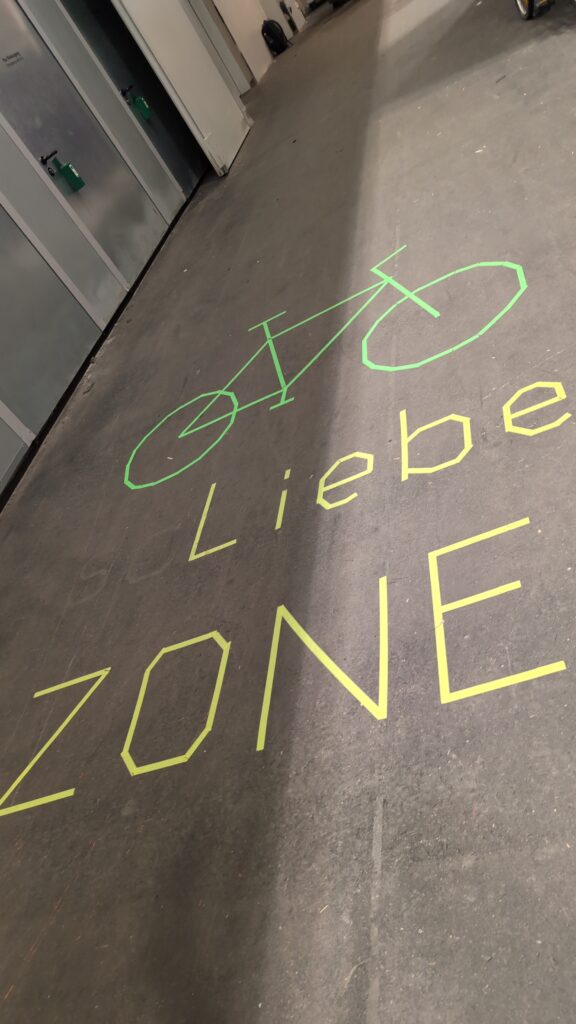 Liebe
ZONE